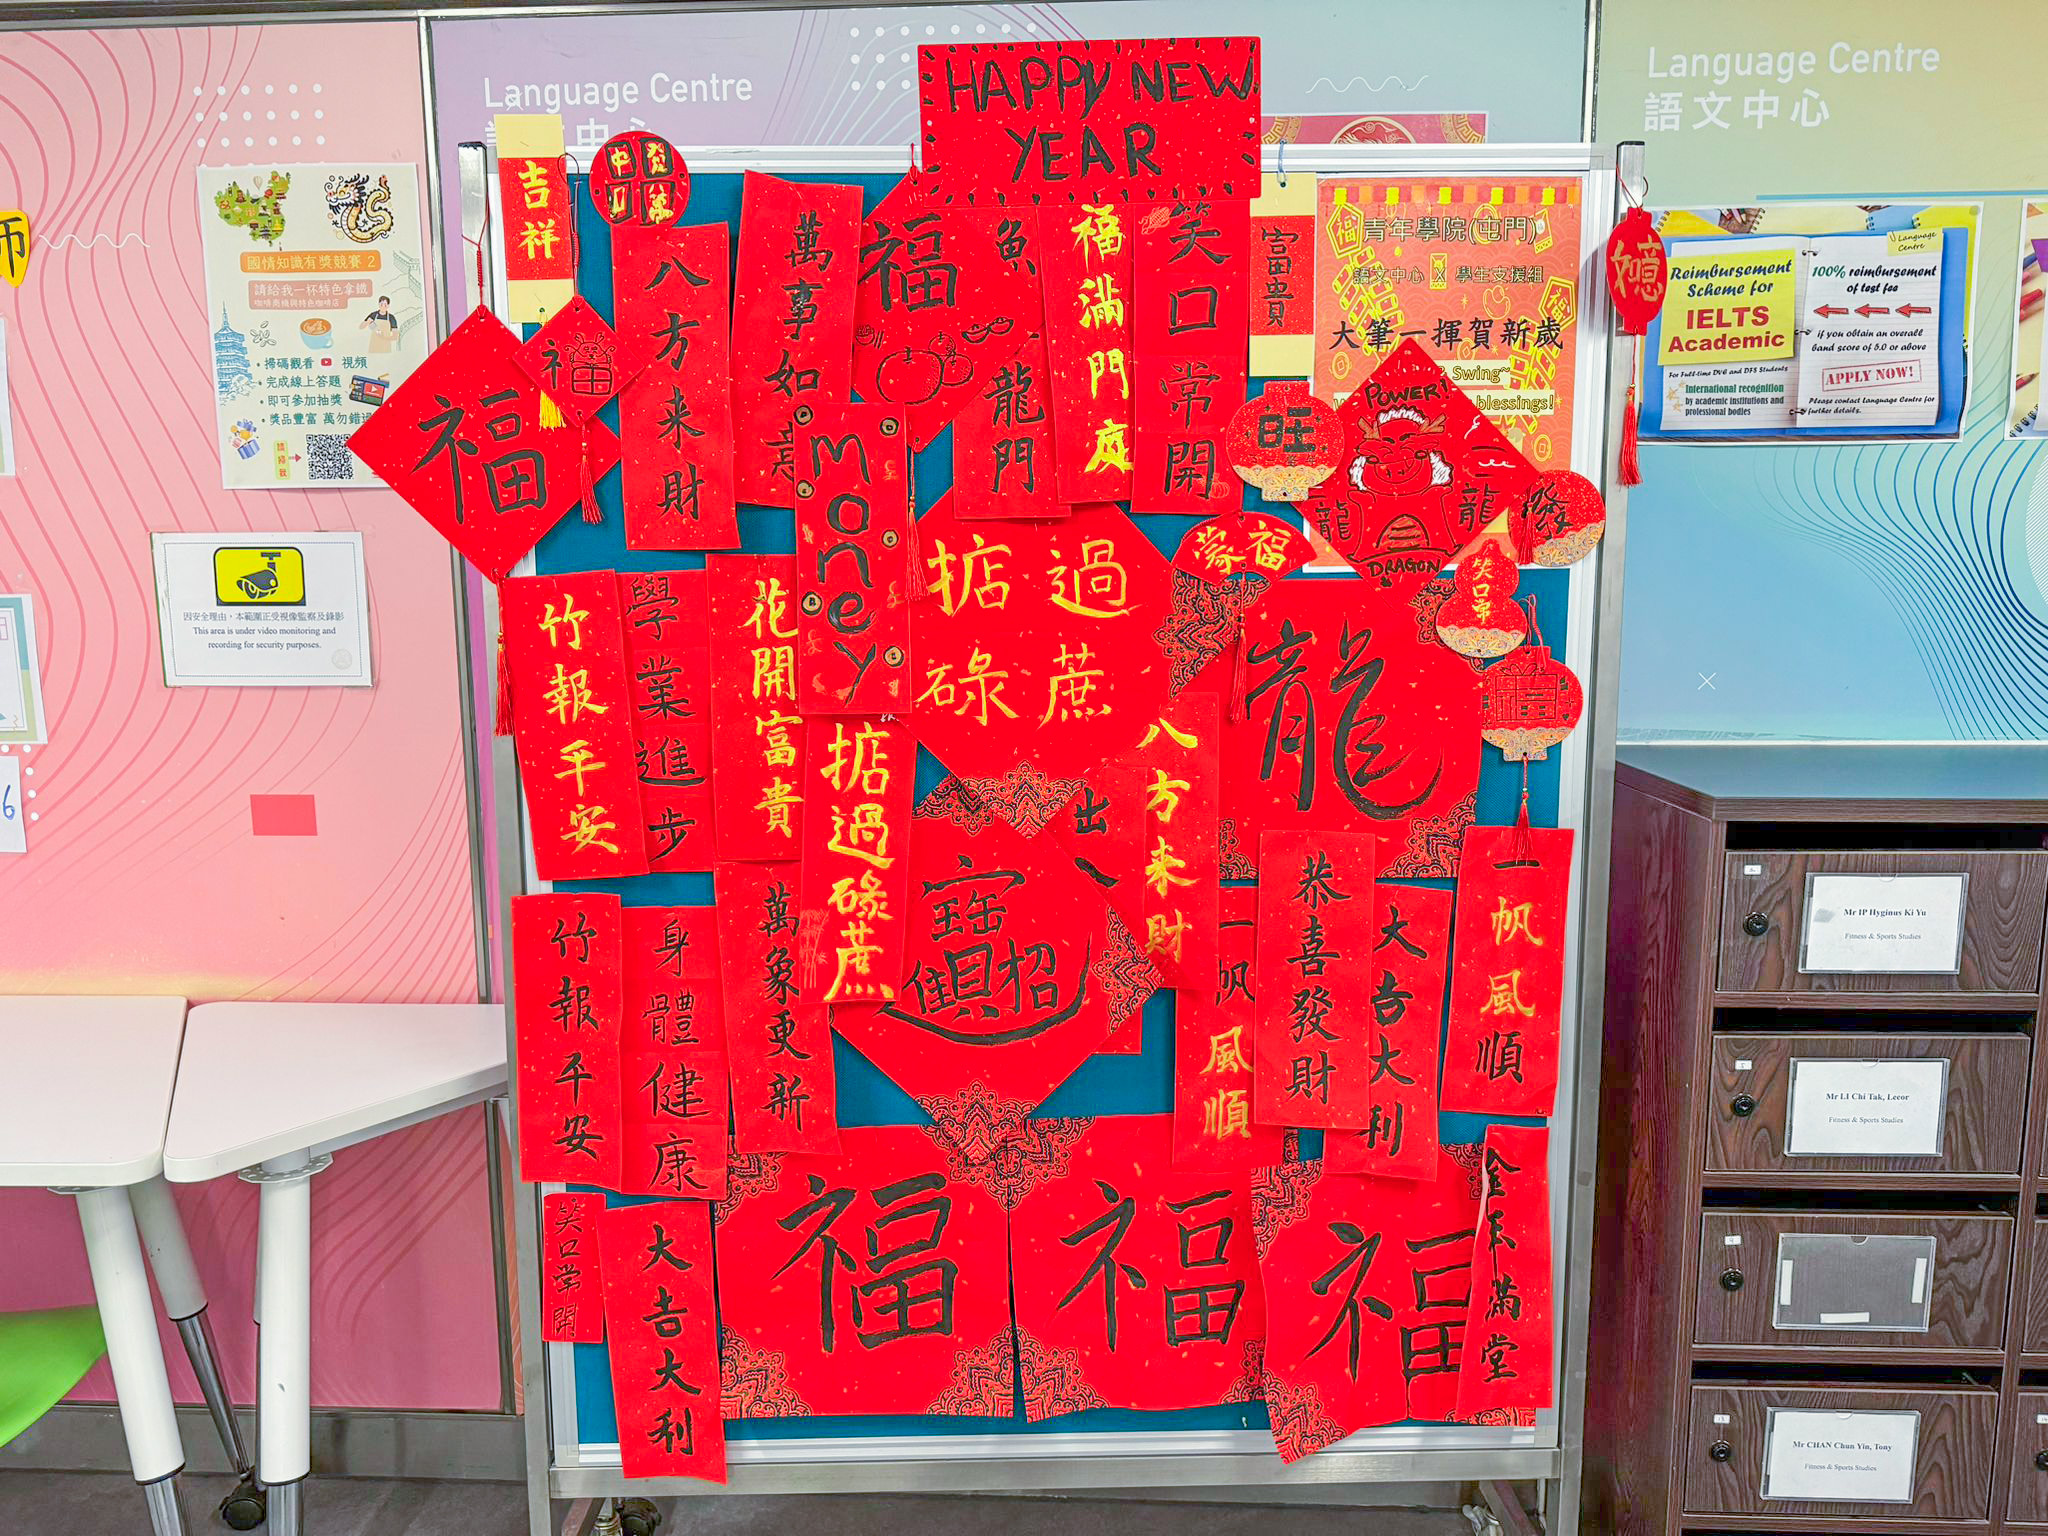 Language Centre
Language Centre
語文中心
師
國情知識有獎競賽 2
請給我一杯特色拿鐵
咖啡商機與特色咖啡店
• 掃碼觀看 視頻
• 完成線上答題
• 即可參加抽獎
• 獎品豐富 萬勿錯過
因安全理由，本範圍正受視像監察及錄影
This area is under video monitoring and
recording for security purposes.
6
HAPPY NEW
YEAR
吉祥
中發
萬
福
八方来財
萬事如意
福
魚
龍門
福滿門庭
笑口常開
富貴
青年學院(屯門)
語文中心 X 學生支援組
大筆一揮賀新歲
& Swing~
blessings!
旺
POWER!
龍
龍
DRAGON
發
蒙福
笑口常
Reimbursement
Scheme for
IELTS
Academic
For Full-time DVE and DFS Students
International recognition
by academic institutions and
professional bodies
Language
Centre
100% reimbursement
of test fee
if you obtain an overall
band score of 5.0 or above
APPLY NOW!
Please contact Language Centre for
further details.
money
掂過
碌蔗
竹報平安
學業進步
花開富貴
掂過碌蔗
龍
出入
八方来財
竹報平安
身體健康
萬象更新
招
一帆風順
恭喜發財
大吉大利
一帆風順
笑口常開
大吉大利
福
福
福
滿堂
Mr IP Hyginus Ki Yu
Fitness & Sports Studies
Mr LI Chi Tak, Leeor
Fitness & Sports Studies
Mr CHAN Chun Yin, Tony
Fitness & Sports Studies